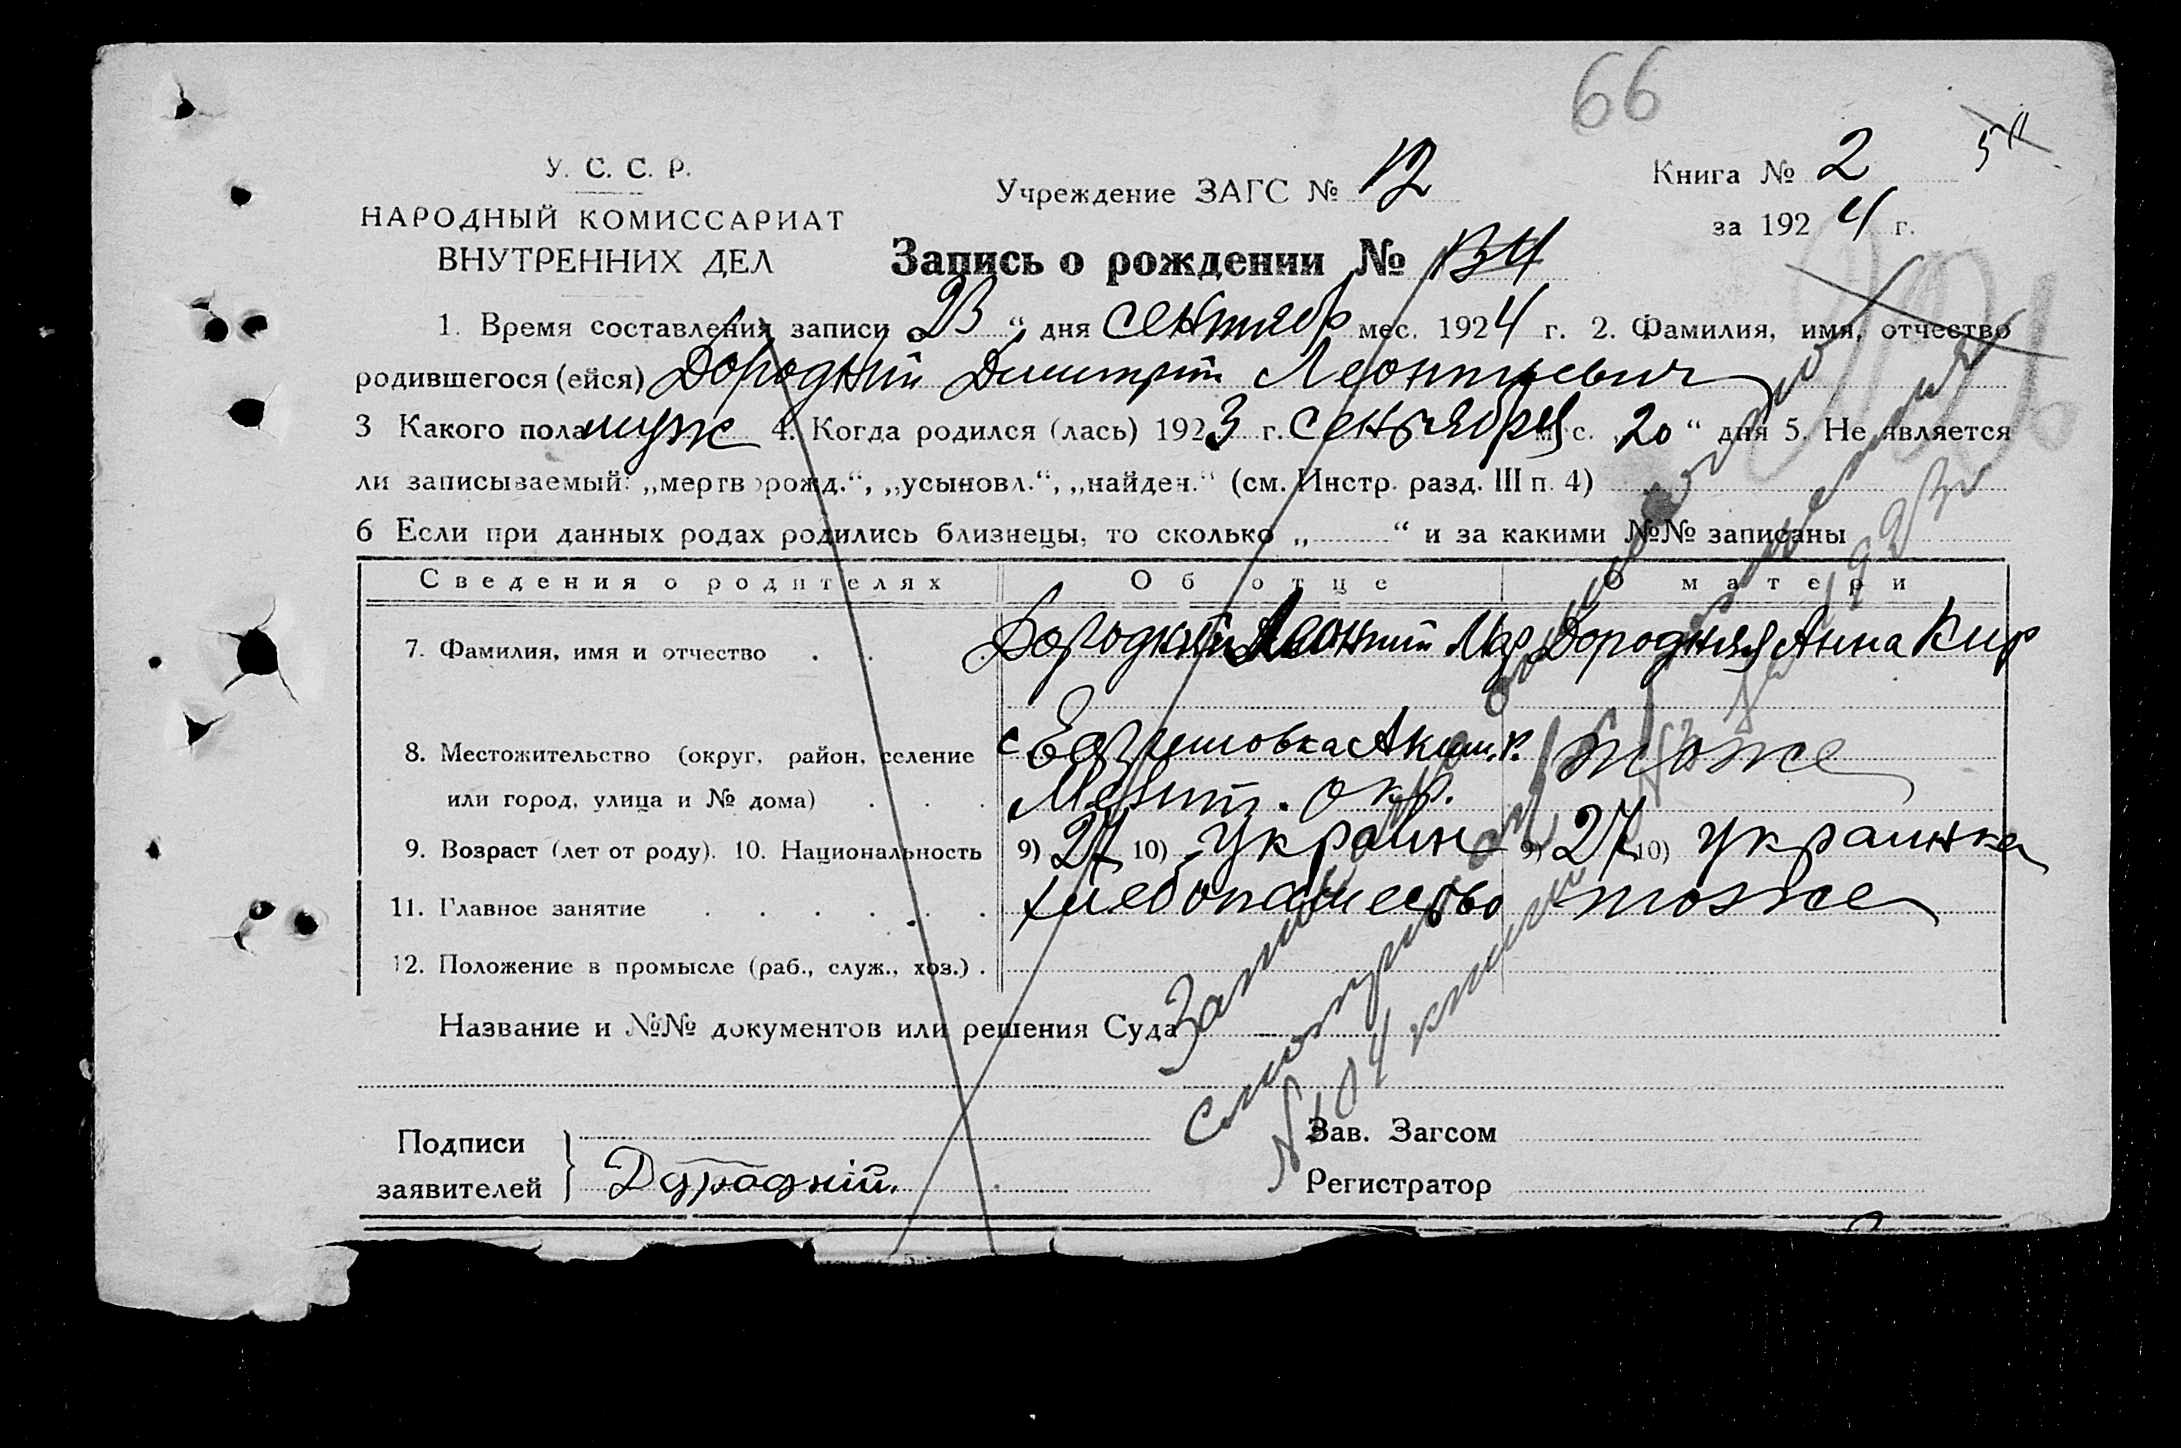 66
У. С. С. Р.
НАРОДНЫЙ КОМИССАРИАТ
ВНУТРЕННИХ ДЕЛ
Учреждение ЗАГС № 12
Книга № 2
за 1924 г.
Запись о рождении № 134
1. Время составления записи „23“ дня сентябр мес. 1924 г. 2. Фамилия, имя, отчество
родившегося (ейся) Дородний Димитрий Леонтиевич
3 Какого пола муж 4. Когда родился (лась) 1923 г. сентября мес. „20“ дня 5. Не является
ли записываемый: „мертворожд.“, „усыновл.“, „найден.“ (см. Инстр. разд. III п. 4)
6 Если при данных родах родились близнецы, то сколько „ “ и за какими №№ записаны
Сведения о родителях Об отце О матери
7. Фамилия, имя и отчество Дородний Леонтий Дородняя Анна Кир
8. Местожительство (округ, район, селение с. Аким. р. тоже
или город, улица и № дома) Мелит. окр.
9. Возраст (лет от роду). 10. Национальность 9) 27 10) Украин 9) 27 10) Украинка
11. Главное занятие хлебопашество тоже
12. Положение в промысле (раб., служ., хоз.)
Название и №№ документов или решения Суда
Подписи
заявителей Дородній.
Зав. Загсом
Регистратор
Запись
№ 104 книги 1923 г